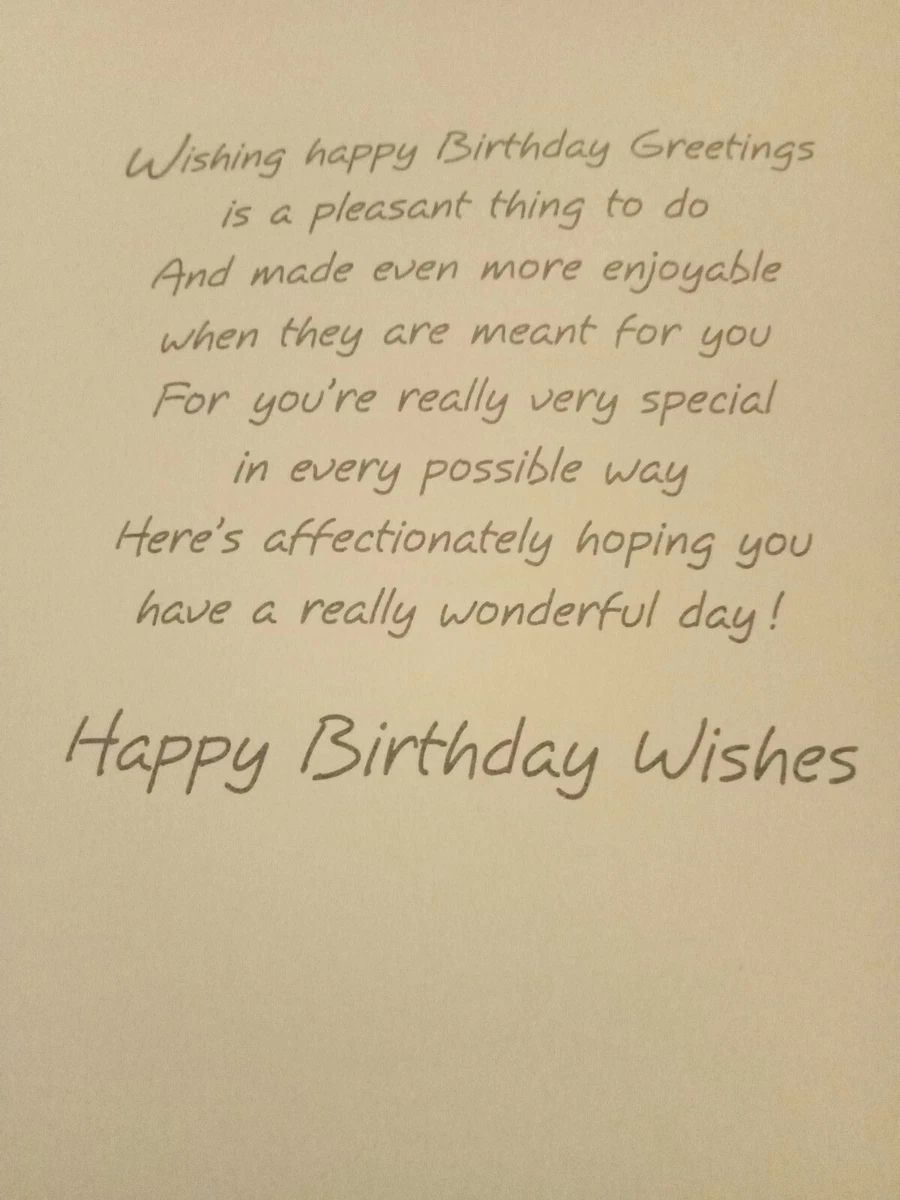 Wishing happy Birthday Greetings
is a pleasant thing to do
And made even more enjoyable
when they are meant for you
For you're really very special
in every possible way
Here's affectionately hoping you
have a really wonderful day!
Happy Birthday Wishes